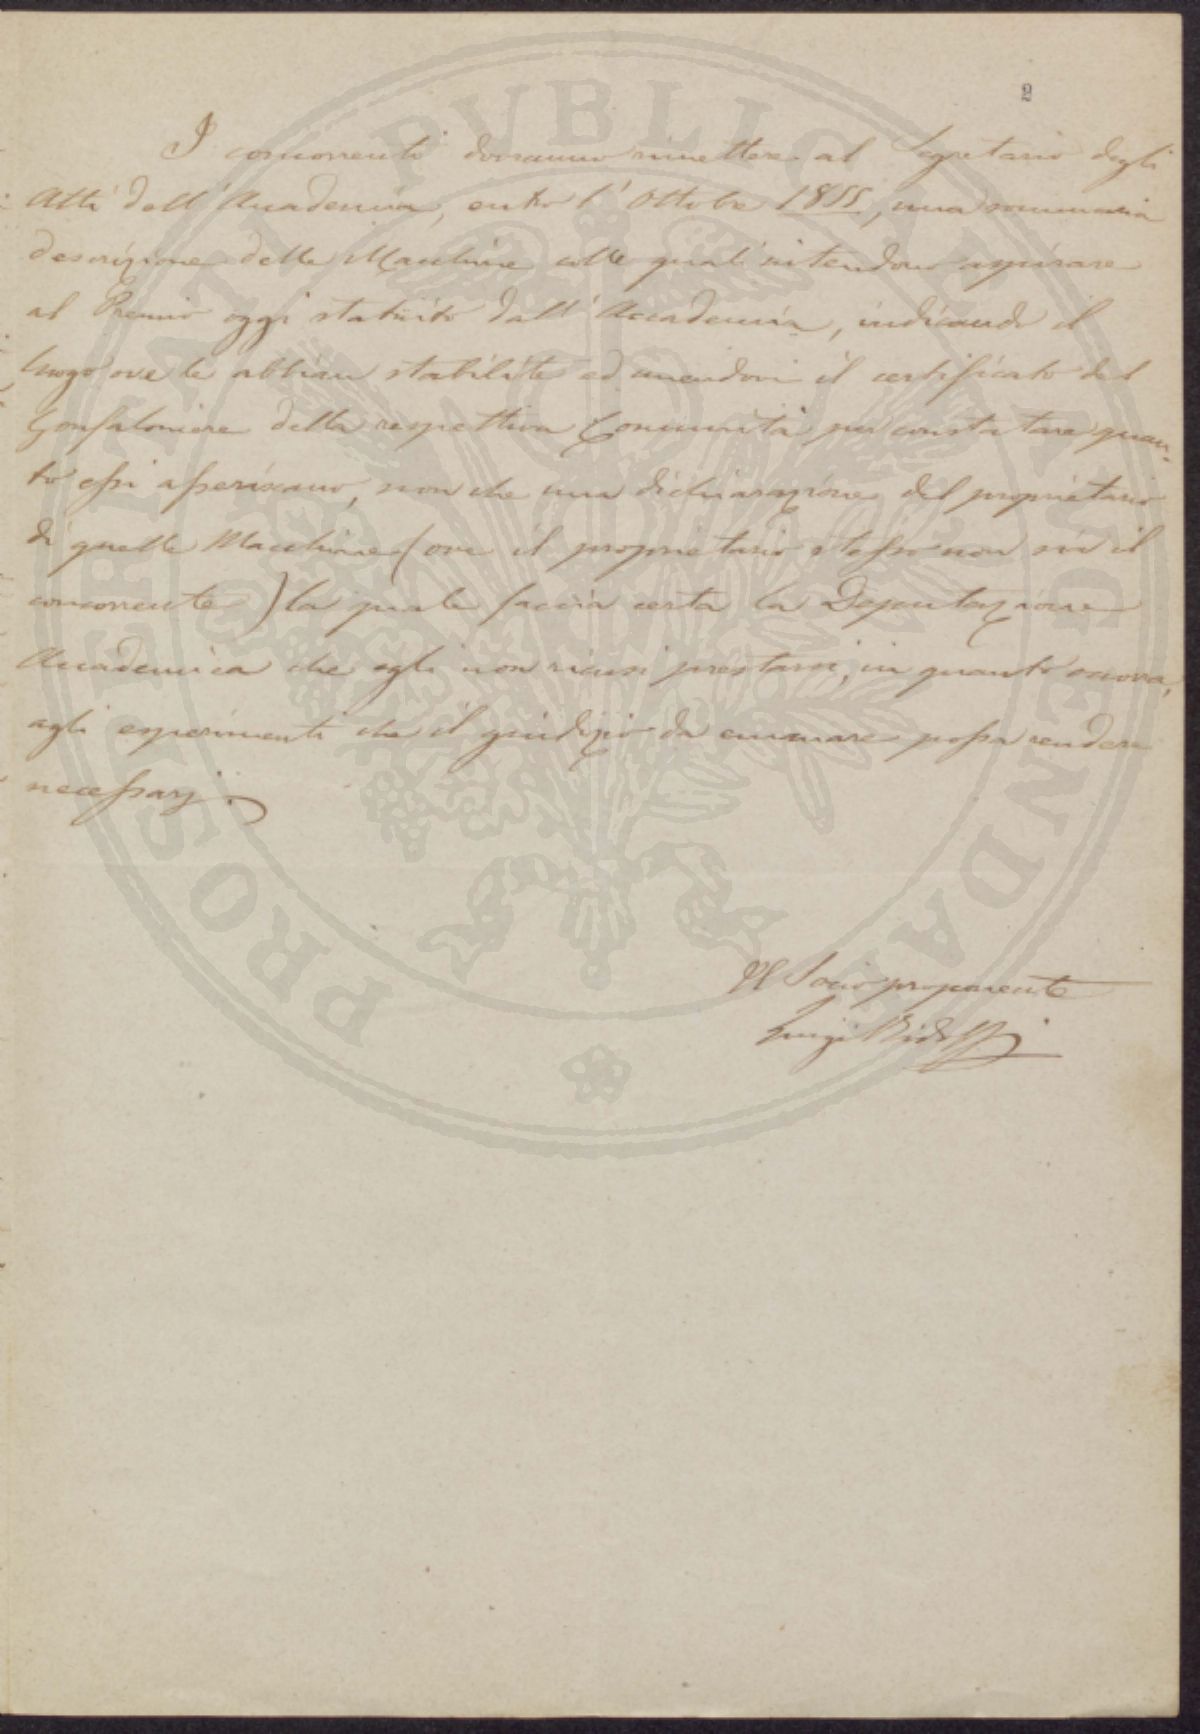 2
I concorrenti dovranno rimettere al Segretario degli
Atti dell'Accademia, entro l'Ottobre 1855, una sommaria
descrizione delle Macchine colle quali intendono aspirare
al Premio oggi statuito dall'Accademia, indicando il
luogo ove le abbian stabilite ed unendovi il certificato del
Gonfaloniere della respettiva Comunità per constatare quan-
to essi asseriscano, non che una dichiarazione del proprietario
di quelle Macchine (ove il proprietario stesso non sia il
concorrente) la quale faccia certa la Deputazione
Accademica che egli non ricusi prestarsi, in quanto occorra,
agli esperimenti che il giudizio da emanare possa rendere
necessarj.
Il Socio proponente
Luigi Ridolfi
PROSPERITATI PVBLICAE AVGENDAE